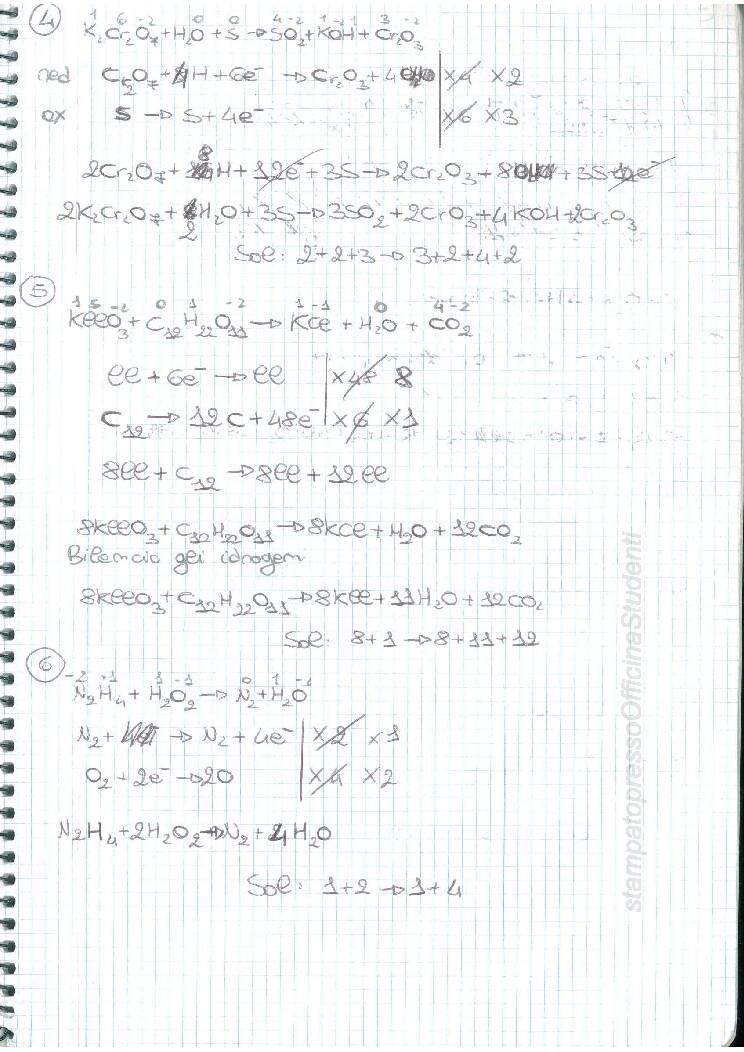 4
1 6 -2 0 0 4 -2 1 -2 1 3 -2
K2Cr2O7+H2O+S→SO2+KOH+Cr2O3
red Cr2O7+ H+6e-→Cr2O3+4 ×4 ×2
ox S→S+4e- ×6 ×3
2Cr2O7+8H+12e-+3S→2Cr2O3+8OH+3S+12e-
2K2Cr2O7+2H2O+3S→3SO2+2CrO3+4KOH+2Cr2O3
Sol: 2+2+3→3+2+4+2
5
1 5 -2 0 1 -2 1 -1 0 4 -2
KClO3+C12H22O11→KCl+H2O+CO2
Cl+6e-→Cl ×48 8
C12→12C+48e- ×6 ×1
8Cl+C12→8Cl+12Cl
8KClO3+C12H22O11→8KCl+H2O+12CO2
Bilancio gli idrogeni
8KClO3+C12H22O11→8KCl+11H2O+12CO2
Sol: 8+1→8+11+12
6
-2 +1 1 -1 0 1 -2
N2H4+H2O2→N2+H2O
N2+ →N2+4e- ×2 ×1
O2+2e-→2O ×4 ×2
N2H4+2H2O2→N2+4H2O
Sol: 1+2→1+4
stampatopressoOfficinaStudenti